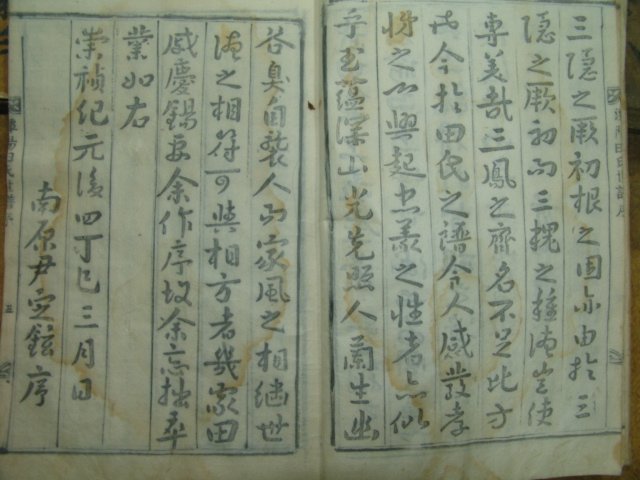 三隱之厥初根之固亦由於三
隱之厥初而三槐之種德豈使
專美哉三鳳之齊名不足比方
於今於田氏之譜令人感發孝
悌之心興起忠義之性者亦似
乎玉蘊深山光先照人蘭生幽
谷臭自襲人而家風之相繼世
德之相符可與相方者幾家田
感慶錫要余作序故余忘拙率
業如右
崇禎紀元後四丁巳三月日
南原尹定鉉序
潭陽田氏世譜序
五